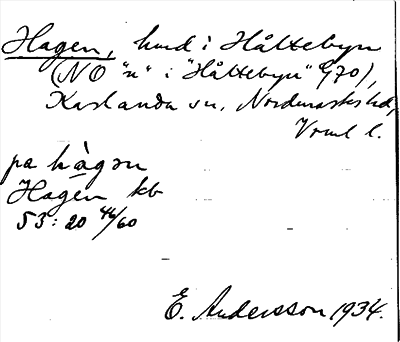 Hagen, hmd i Håltebyn
(NO "n" i "Håltebyn" 9/70),
Karlanda sn, Nordmarks hd,
Vrml l.
pa hàgən
Hagen kb
53:20 46/60
E. Andersson 1934.